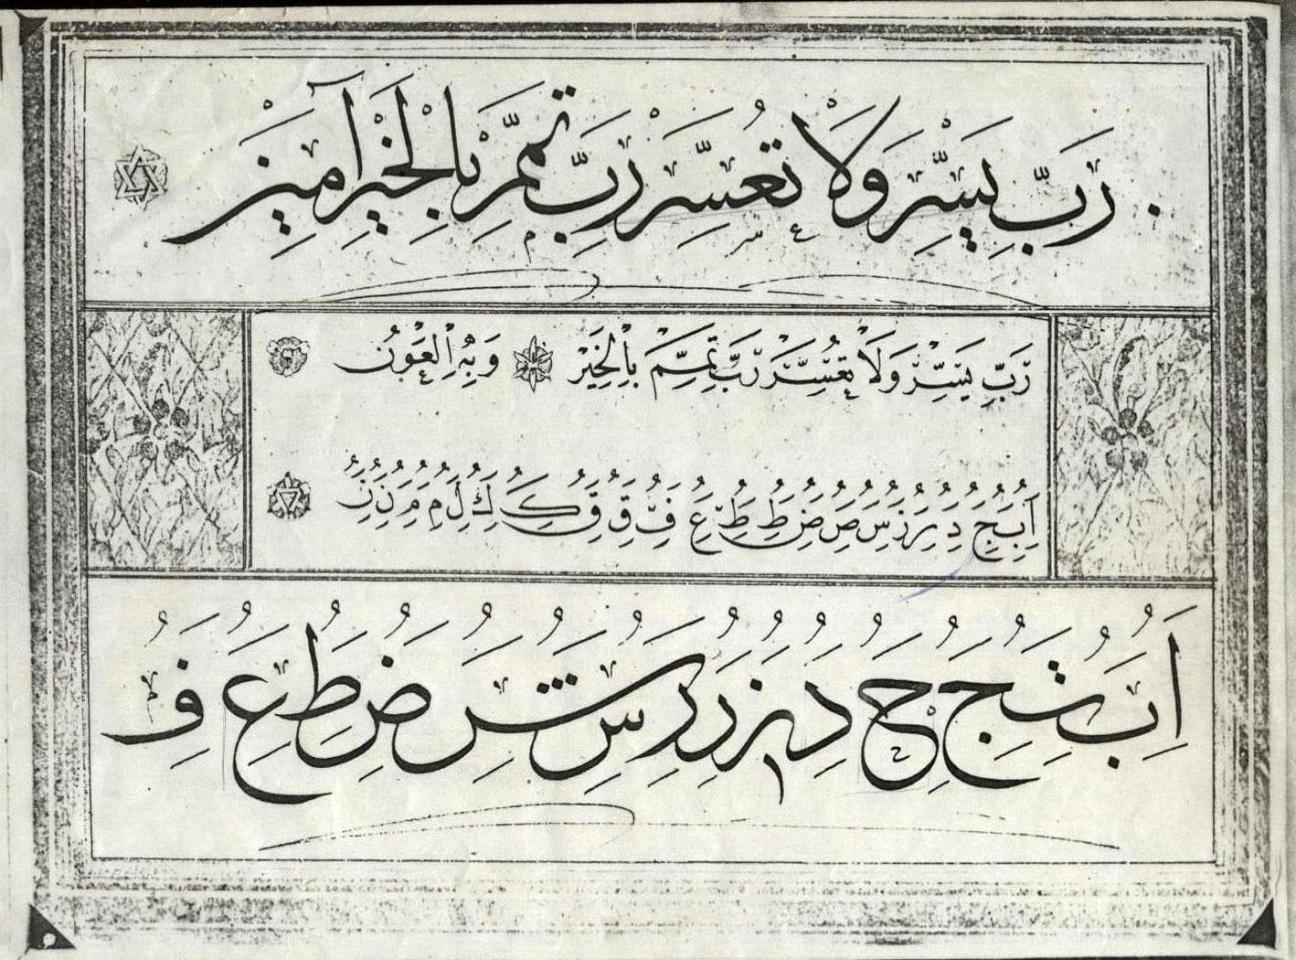 رَبِّ يَسِّرْ وَلَا تُعَسِّرْ رَبِّ تَمِّمْ بِالْخَيْرِ آمِينْ
رَبِّ يَسِّرْ وَلَا تُعَسِّرْ رَبِّ تَمِّمْ بِالْخَيْرِ وَبِهِ الْعَوْنُ
ا ب ج د ر ز س ص ض ط ط ع ف ق ق ك ك ل م م ن ن
ا ب ج ح د ز ر ر س ش ض ط ع ف